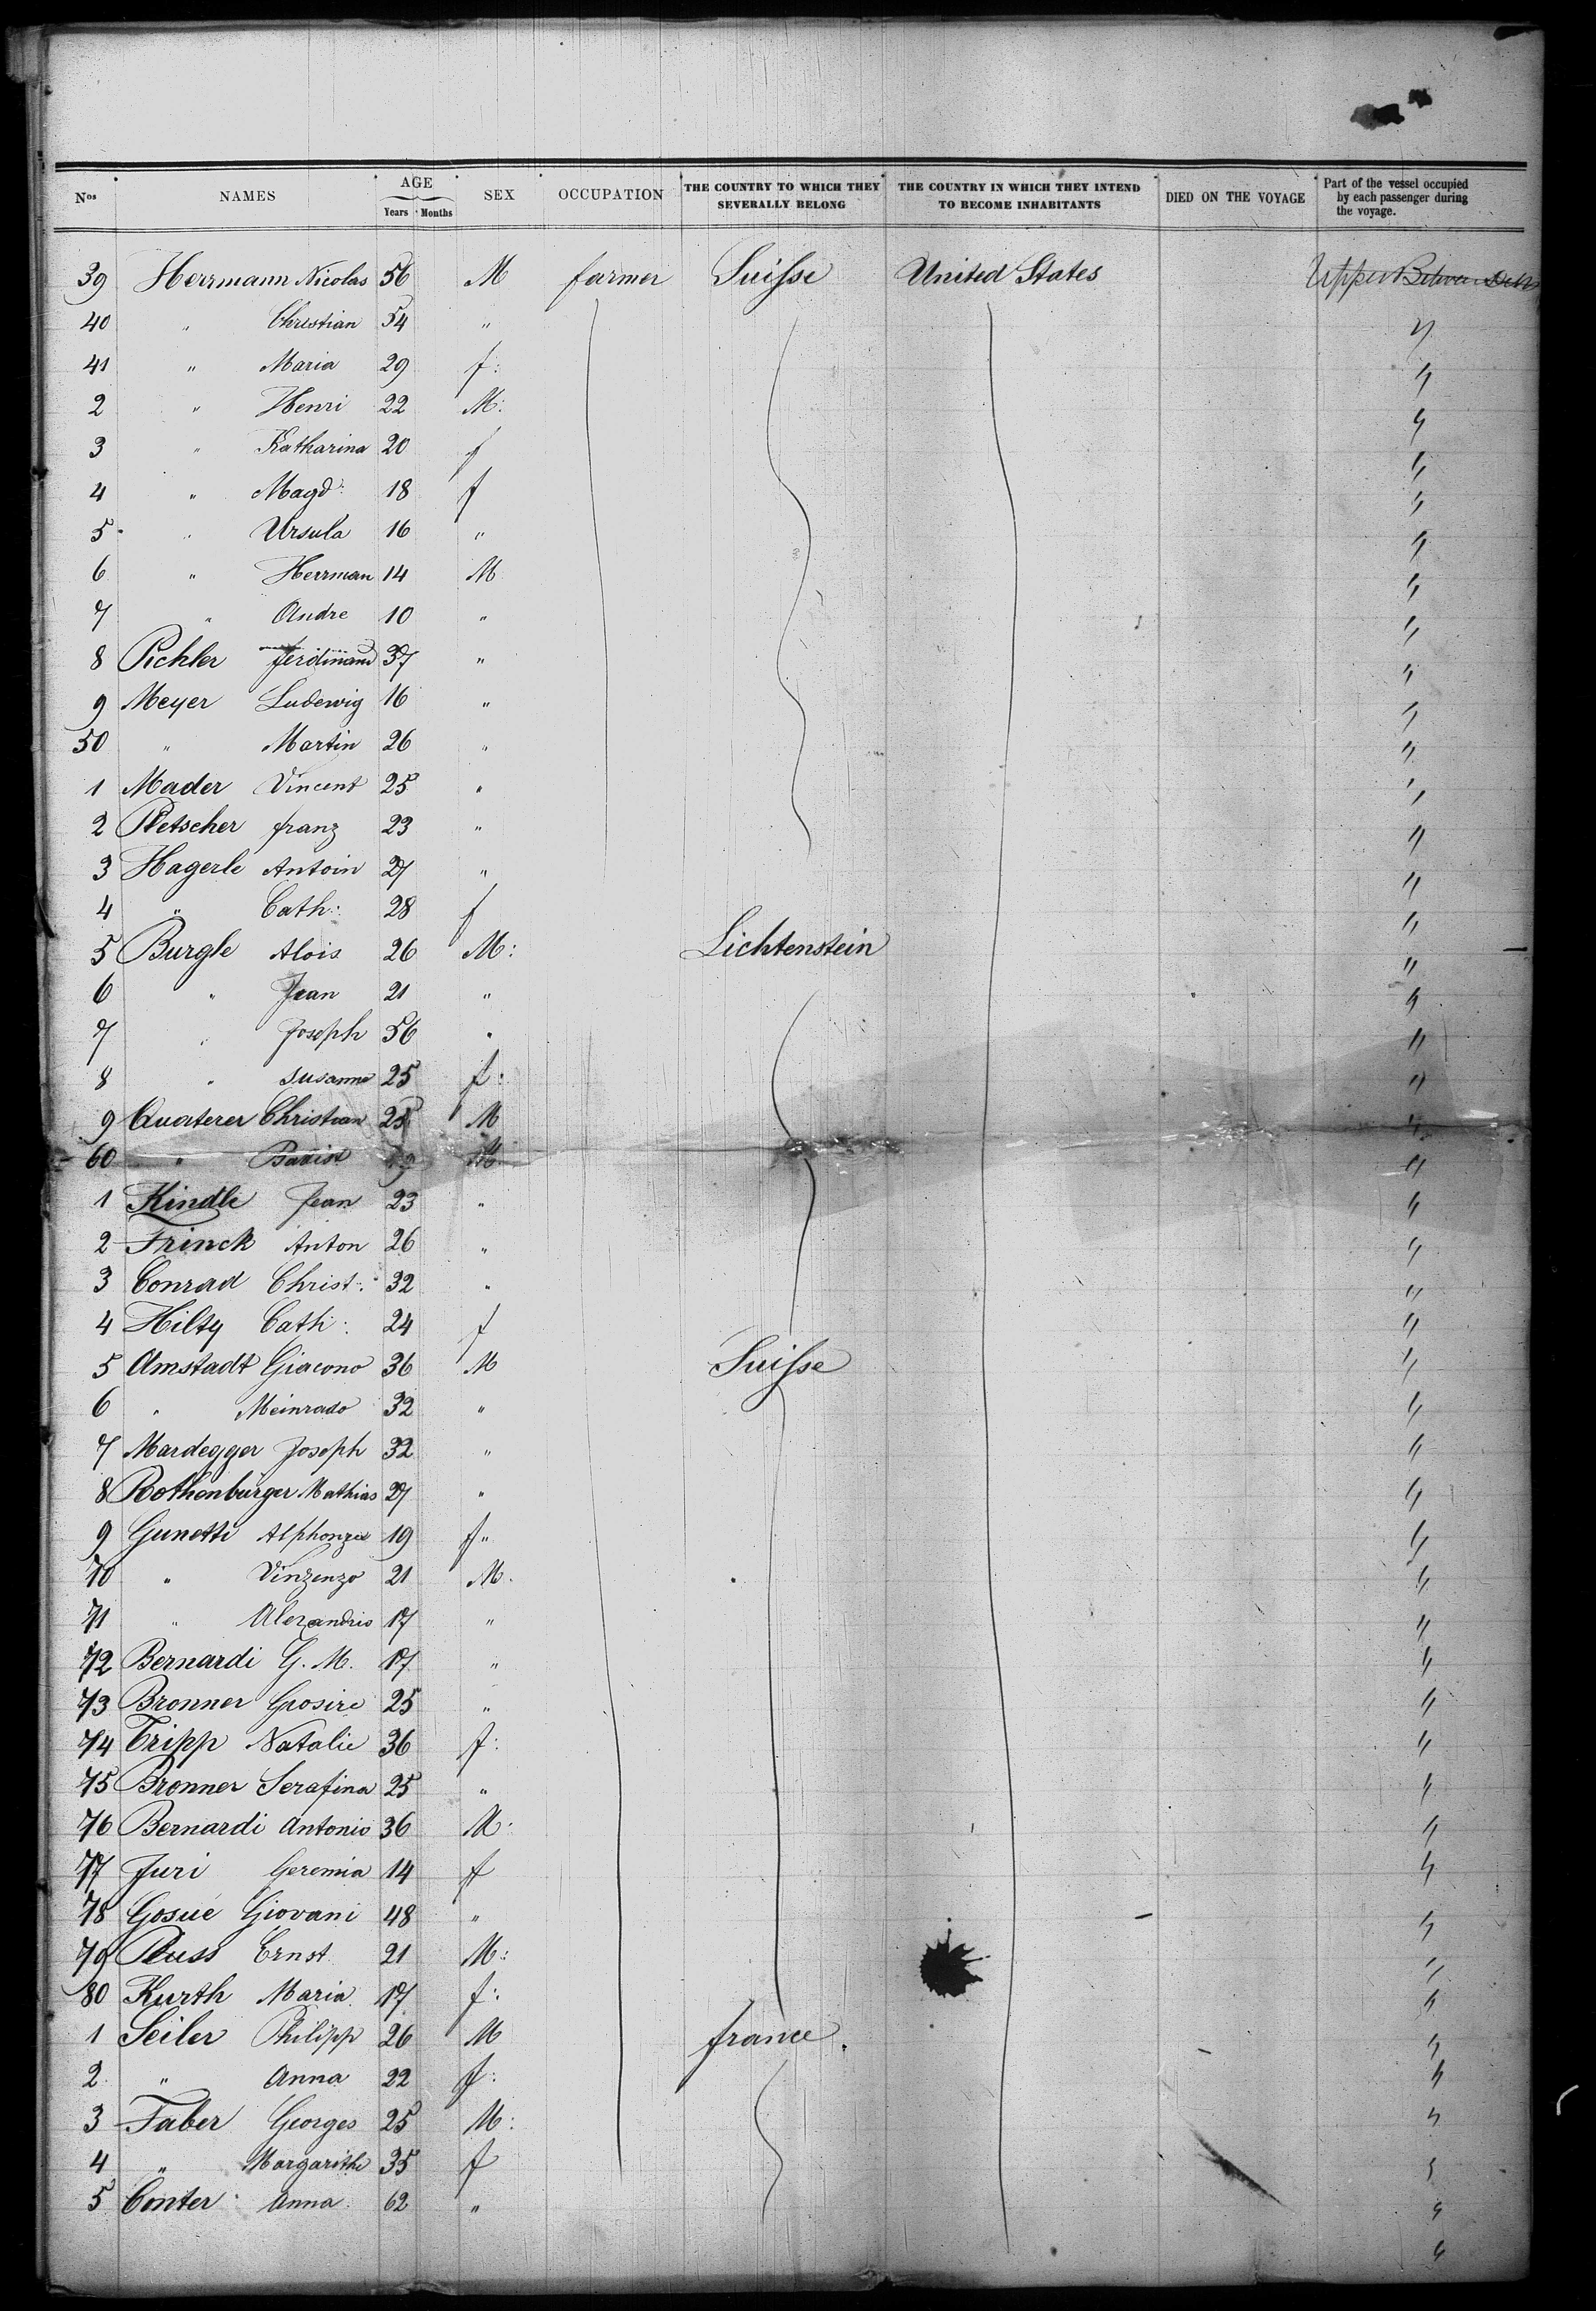 Nos NAMES AGE Years Months SEX OCCUPATION THE COUNTRY TO WHICH THEY SEVERALLY BELONG THE COUNTRY IN WHICH THEY INTEND TO BECOME INHABITANTS DIED ON THE VOYAGE Part of the vessel occupied by each passenger during the voyage.
39 Herrmann Nicolas 56 M farmer Suisse United States Upper
40 " Christian 54 " "
41 " Maria 29 f: "
2 " Henri 22 M: "
3 " Katharina 20 f "
4 " Magd: 18 f "
5 " Ursula 16 " "
6 " Herrman 14 M "
7 " Andre 10 " "
8 Pichler ferdinand 37 " "
9 Meyer Ludewig 16 " "
50 " Martin 26 " "
1 Mader Vincent 25 " "
2 Pletscher franz 23 " "
3 Hagerle Antoin 27 " "
4 " Cath: 28 f "
5 Burgle Alois 26 M: Lichtenstein "
6 " Jean 21 " "
7 " Joseph 56 " "
8 " Susanna 25 f: "
9 Quaterer Christian 25 M "
60 " M "
1 Kindle Jean 23 " "
2 Frinck Anton 26 " "
3 Conrad Christ: 32 " "
4 Hilty Cath: 24 f "
5 Amstadt Giacono 36 M Suisse "
6 " Meinrado 32 " "
7 Mardegger Joseph 32 " "
8 Rothenburger Mathias 27 " "
9 Gunetti Alphonzia 19 f" "
70 " Vinzenzo 21 M. "
71 " Alexandrio 17 " "
72 Bernardi G. M. 17 " "
73 Bronner 25 " "
74 Tripp Natalie 36 f: "
75 Bronner Serafina 25 " "
76 Bernardi Antonio 36 M: "
77 Juri Geremia 14 f "
78 Gosué Giovani 48 " "
79 Russ Ernst 21 M: "
80 Kurth Maria 17 f: "
1 Seiler Philipp 26 M france. "
2 " Anna 22 f: "
3 Faber Georges 25 M: "
4 " Margarithe 35 f "
5 Conter Anna 62 " "
"